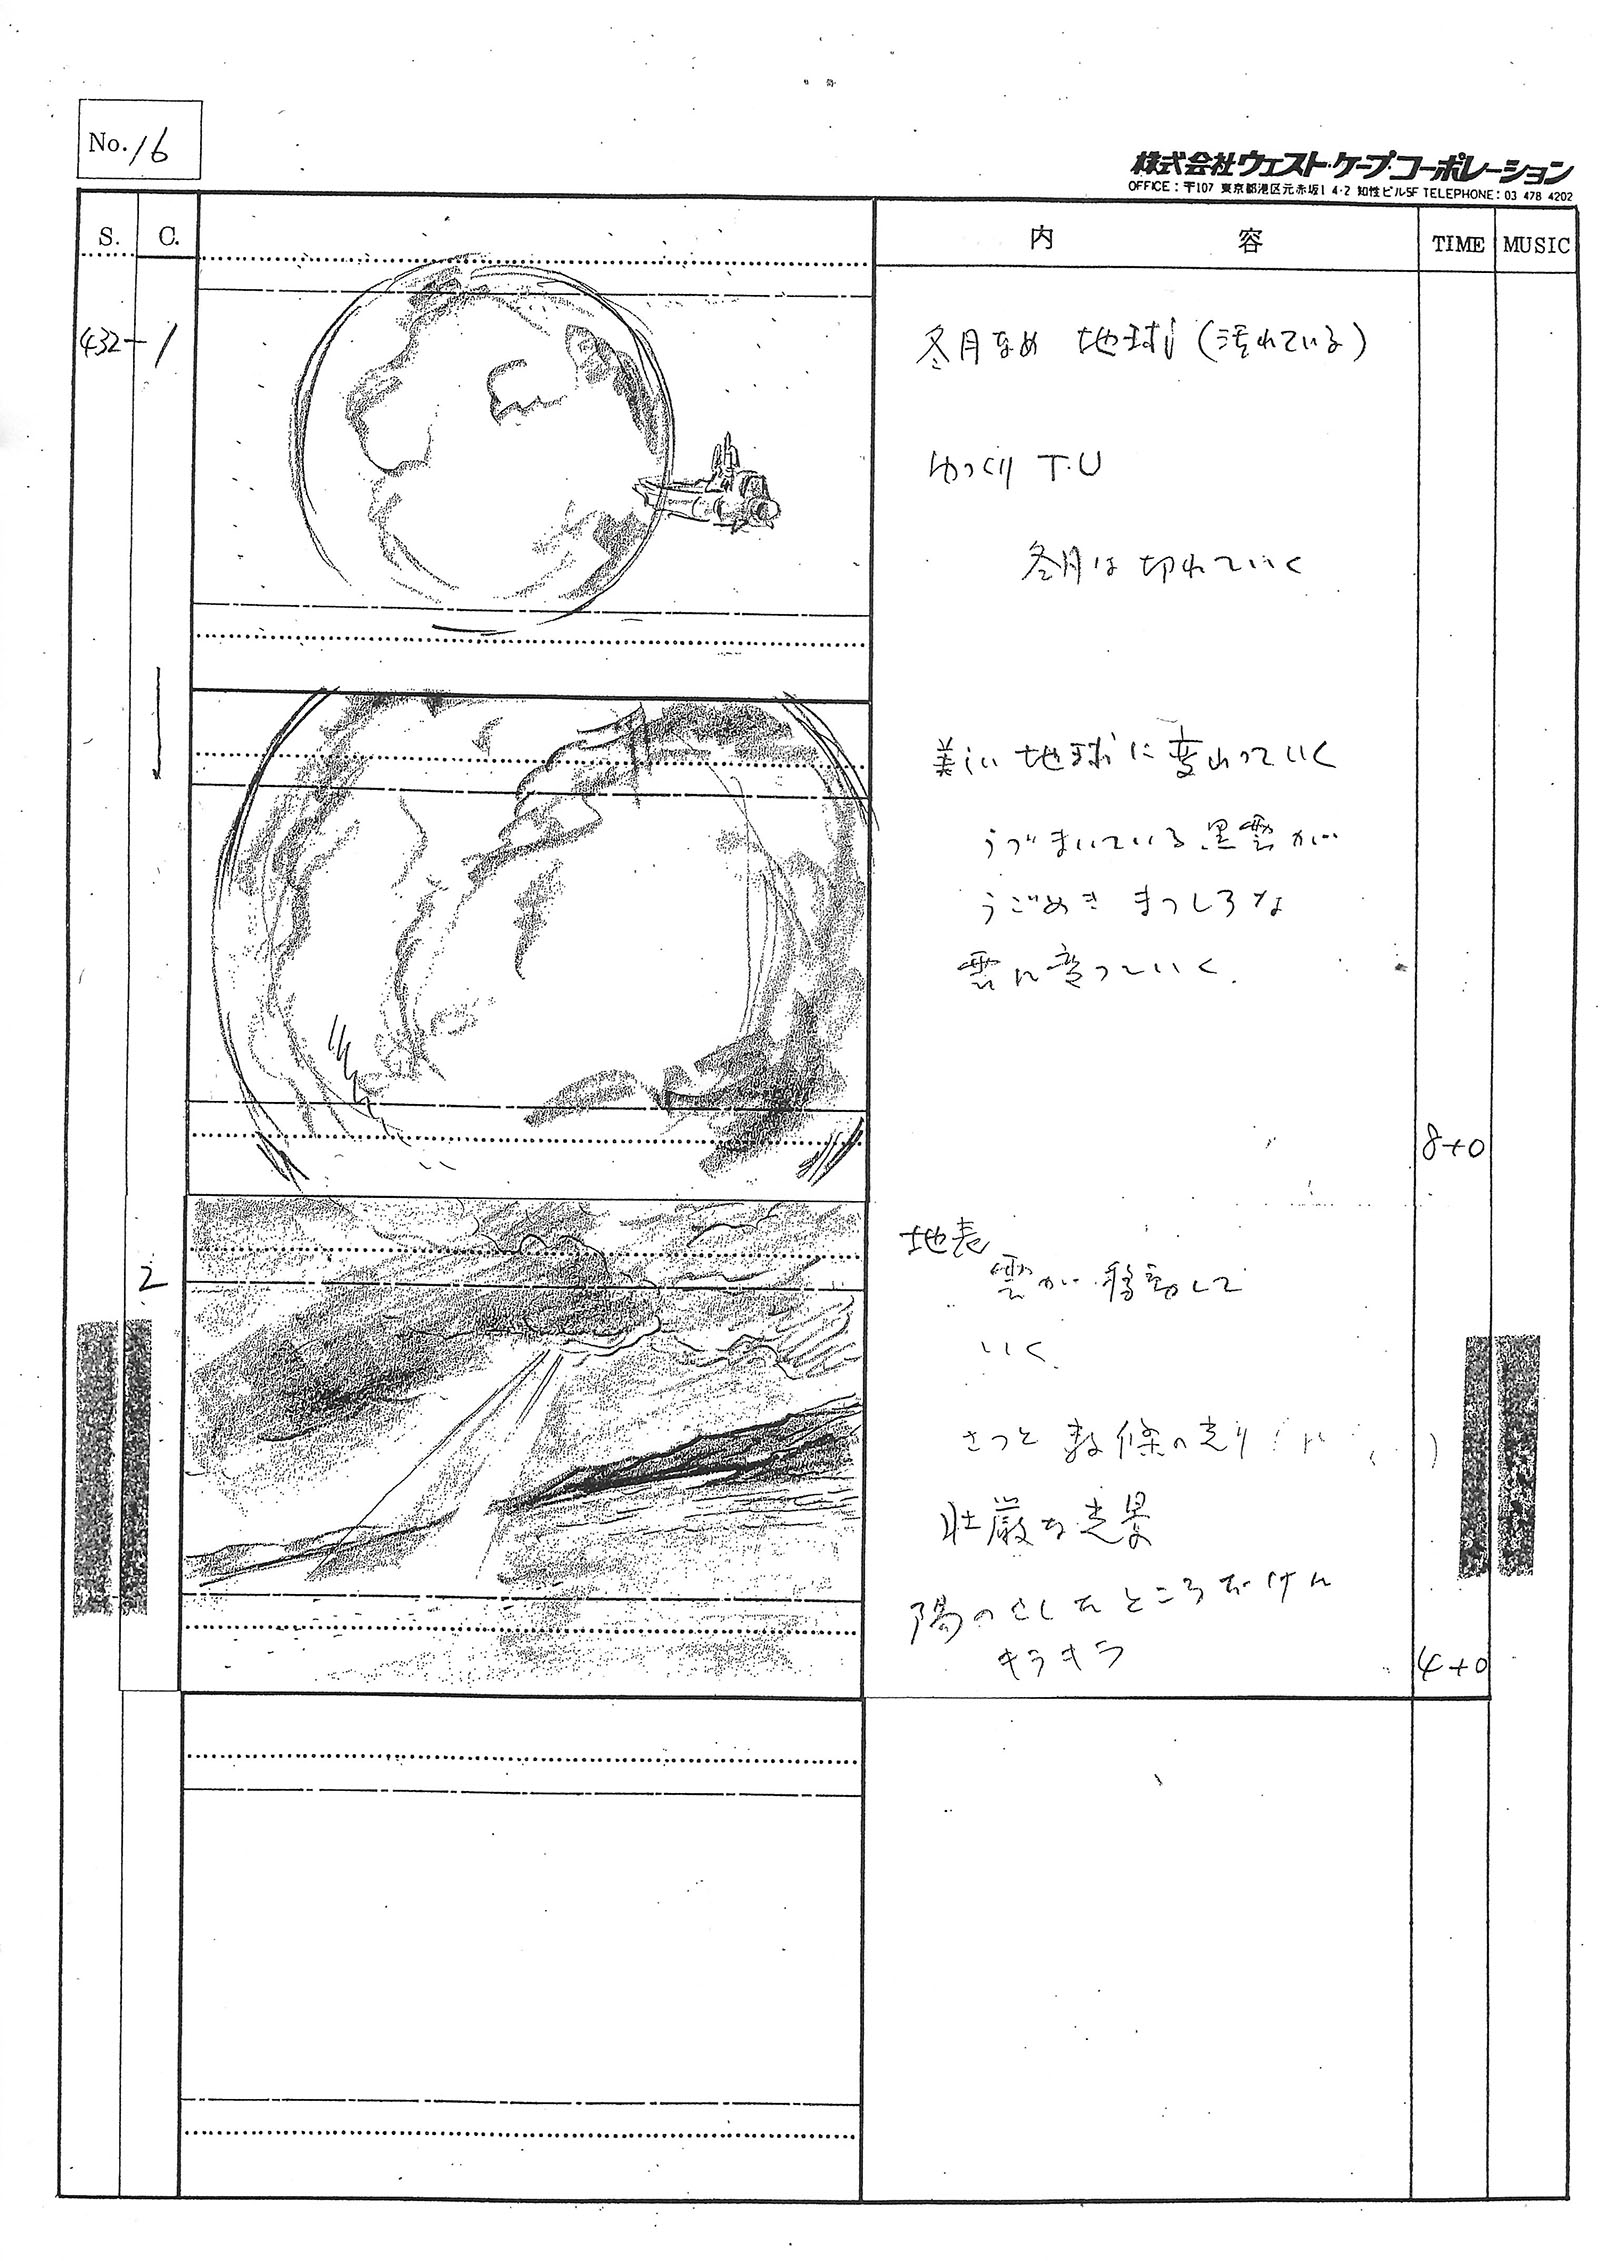 No. 16
株式会社ウェスト・ケープ・コーポレーション
OFFICE：〒107 東京都港区元赤坂1 4-2 知性ビル5F TELEPHONE：03 478 4202
S. C. 内 容 TIME MUSIC
432-1
冬月なめ 地球(汚れている)
ゆっくり T.U
冬月は切れていく
美しい地球に変わっていく
うづまいている黒雲が
うごめき まっしろな
雲に変っていく.
8+0
2
地表
雲が移動して
いく
さっと 数條の光り
壮厳な光景
陽のさしたところだけ
キラキラ
4+0